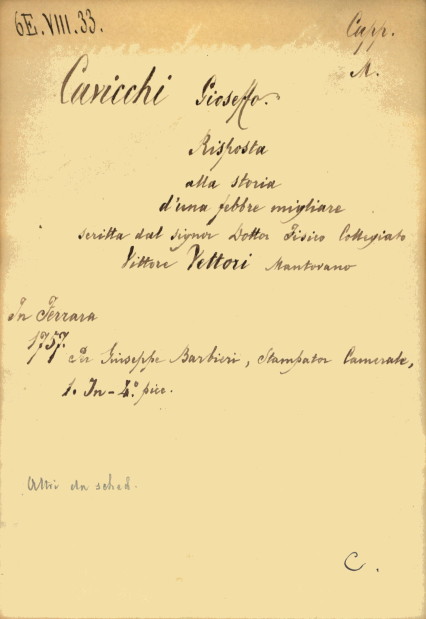 6E.VIII.33.
Capp.
M.
Cavicchi Gioseffo.
Risposta
alla storia
d'una febbre migliare
scritta dal signor Dottor Fisico Collegiato
Vittore Vettori Mantovano
In Ferrara
1757.
per Giuseppe Barbieri, Stampator Camerale,
1. In-4.° picc.
Altri da sched.
C.